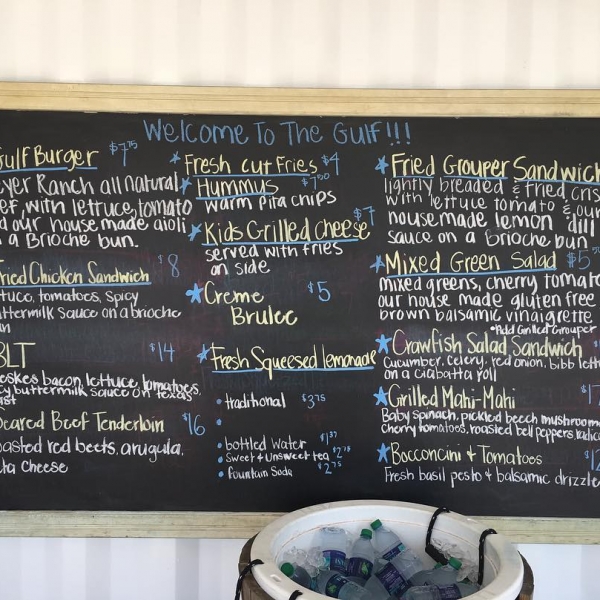 Welcome To The Gulf!!!
Gulf Burger $7.75
Meyer Ranch all natural
beef, with lettuce, tomato
and our house made aioli
on a Brioche bun.
Fried Chicken Sandwich $8
lettuce, tomatoes, spicy
buttermilk sauce on a brioche
bun
BLT $14
bacon, lettuce, tomatoes,
buttermilk sauce on Texas
toast
Seared Beef Tenderloin $16
roasted red beets, arugula,
feta cheese
Fresh cut fries $4
Hummus
warm pita chips
Kids Grilled cheese $7
served with fries
on side
Creme $5
Brulee
Fresh Squeesed lemonade
traditional $3.75
bottled water
Sweet & Unsweet tea $2.75
fountain Soda $2.75
Fried Grouper Sandwich
lightly breaded & fried
with lettuce tomato & our
housemade lemon dill
sauce on a Brioche bun
Mixed Green Salad
mixed greens, cherry tomato
our house made gluten free
brown balsamic vinaigrette
*Add Grilled Grouper
Crawfish Salad Sandwich
Cucumber, celery, red onion, bibb
on a ciabatta roll
Grilled Mahi-Mahi
Baby spinach, pickled beech mushrooms
Cherry tomatoes, roasted bell peppers,
Bocconcini & Tomatoes
Fresh basil pesto & balsamic drizzle